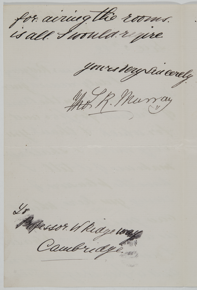 for airing the rooms.
is all I would require
yours very sincerely
Thos R. Murray
To
Professor W Ridgeway
Cambridge